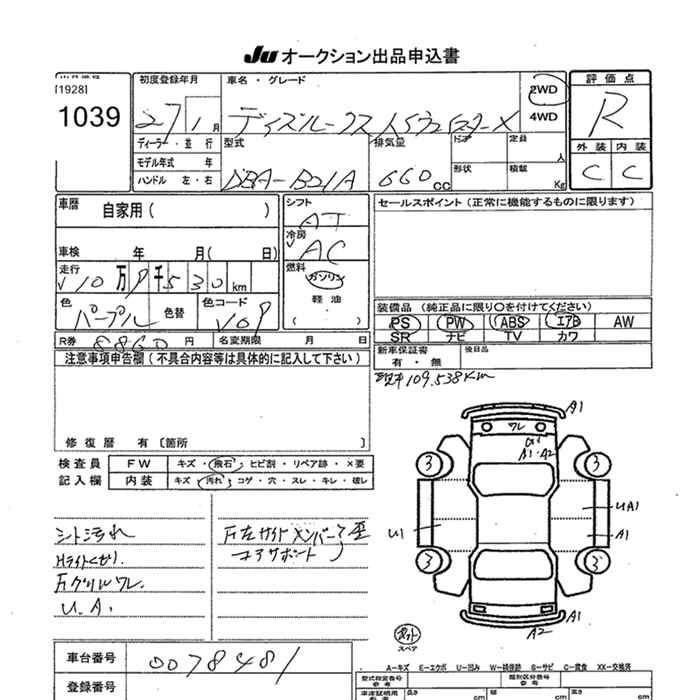 Ju オークション出品申込書
[1928]
1039
初度登録年月
27 1 月
車名 ・ グレード
デイズルークス
2WD
4WD
評価点
R
ディーラー・並行
モデル年式 年
ハンドル 左・右
型式
DBA-B21A
排気量
660 cc
ドア
定員 人
形状
積載 Kg
外装 内装
C C
車歴
自家用 ( )
シフト
AT
セールスポイント (正常に機能するものに限ります)
車検 年 月( 日)
冷房
AC
走行
10万9千530km
燃料
ガソリン
軽油
( )
色
パープル
色替
色コード
装備品 (純正品に限り○を付けてください)
PS PW ABS エアB AW
SR ナビ TV カワ
R券 8860 円
名変期限 月 日
新車保証書
有 ・ 無
後日品
109.538Km
注意事項申告欄 (不具合内容等は具体的に記入して下さい)
修復歴 有〔箇所 〕
検査員
記入欄
FW キズ・飛石・ヒビ割・リペア跡・×要
内装 キズ・汚れ・コゲ・穴・スレ・キレ・破レ
シート汚れ
Hライトくもり
Fグリルワレ.
U.A.
F左サイドメンバー
コアサポート
歪
A1
ワレ
A1・A2
3 3
UA1
U1
A1
3 3
A1
A2
スペア
A-キズ E-エクボ U-凹み W-補修跡 S-サビ C-腐食 XX-交換済
車台番号
0078481
登録番号
型式指定番号
参考
類別区分番号
参考
長さ cm
幅 cm
高さ cm